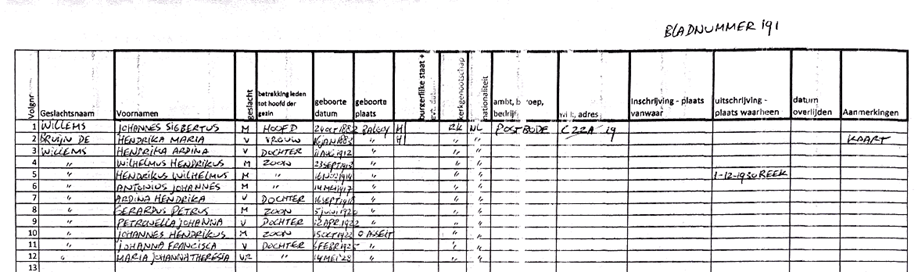 BLADNUMMER 191
Volgnr Geslachtsnaam Voornamen geslacht betrekking leden tot hoofd der gezin geboorte datum geboorte plaats burgerlijke staat + kerkgenootschap nationaliteit ambt, beroep, adres Inschrijving - plaats vanwaar uitschrijving - plaats waarheen datum overlijden Aanmerkingen
1 WILLEMS JOHANNES SIEBERTUS M HOOFD H RK NL POSTBODE C22A 19
2 BRUIJN DE HENDRIKA MARIA V VROUW H " " KAART
3 WILLEMS HENDRIKA ARDINA V DOCHTER 11 AUG 1912 " "
4 " WILHELMUS HENDRIKUS M ZOON " "
5 " HENDRIKUS WILHELMUS M " " " 1-12-1930 REEK
6 " ANTONIUS JOHANNES M " 14 MEI 1917 " "
7 " ARDINA HENDRIKA V DOCHTER " "
8 " GERARDUS PETRUS M ZOON " "
9 " PETRONELLA JOHANNA V DOCHTER " "
10 " JOHANNES HENDRIKUS M ZOON " "
11 " JOHANNA FRANCISCA V DOCHTER " "
12 " MARIA JOHANNA THERESIA VR " 14 MEI '28 " " "
13